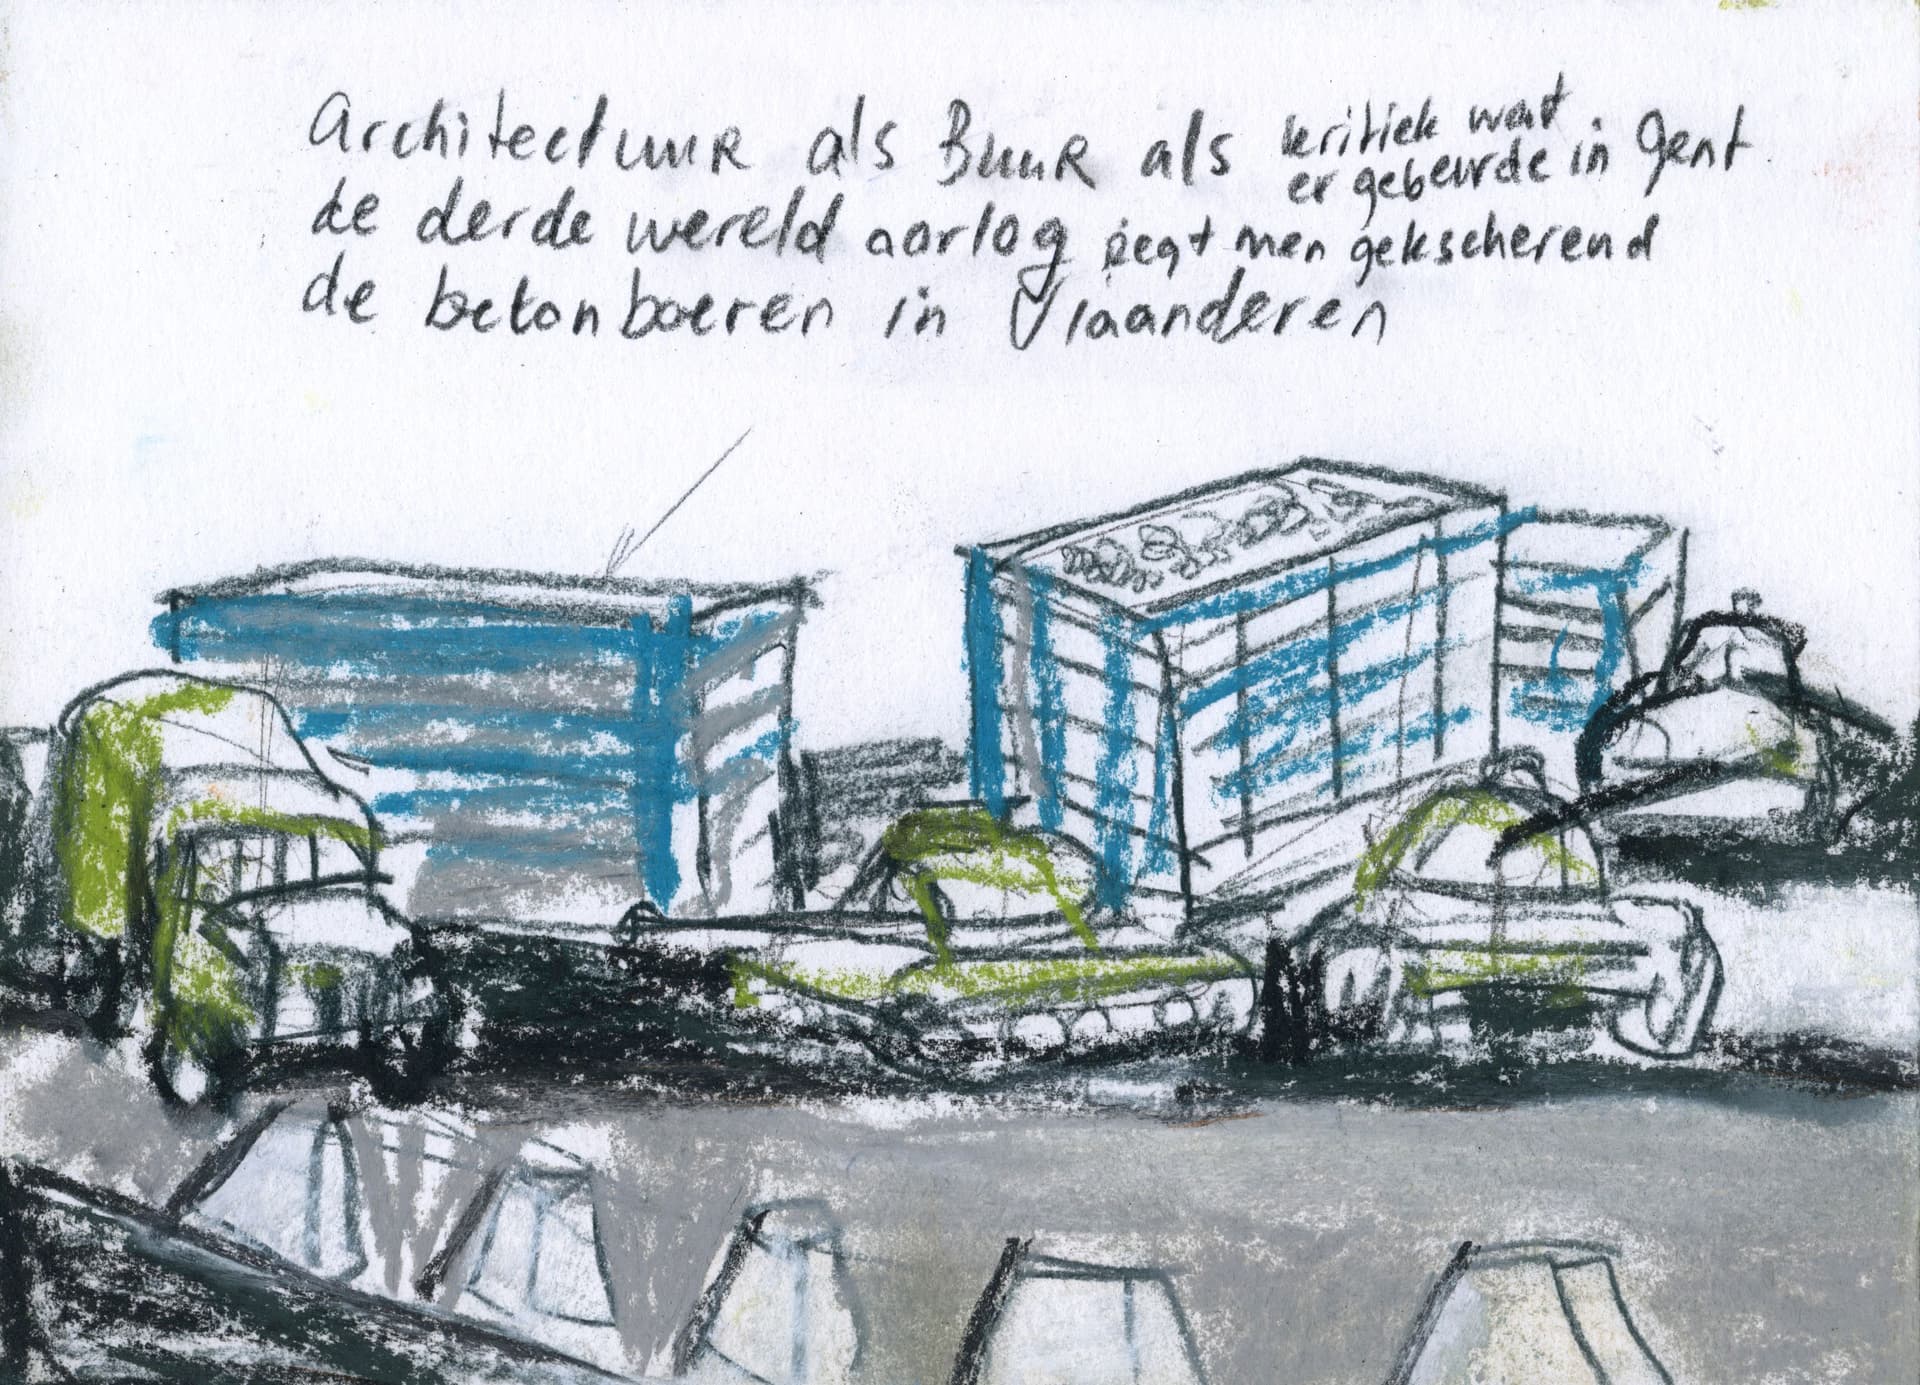 Architectuur als Buur als kritiek wat
er gebeurde in Gent
de derde wereld oorlog zegt men gekscherend
de betonboeren in Vlaanderen